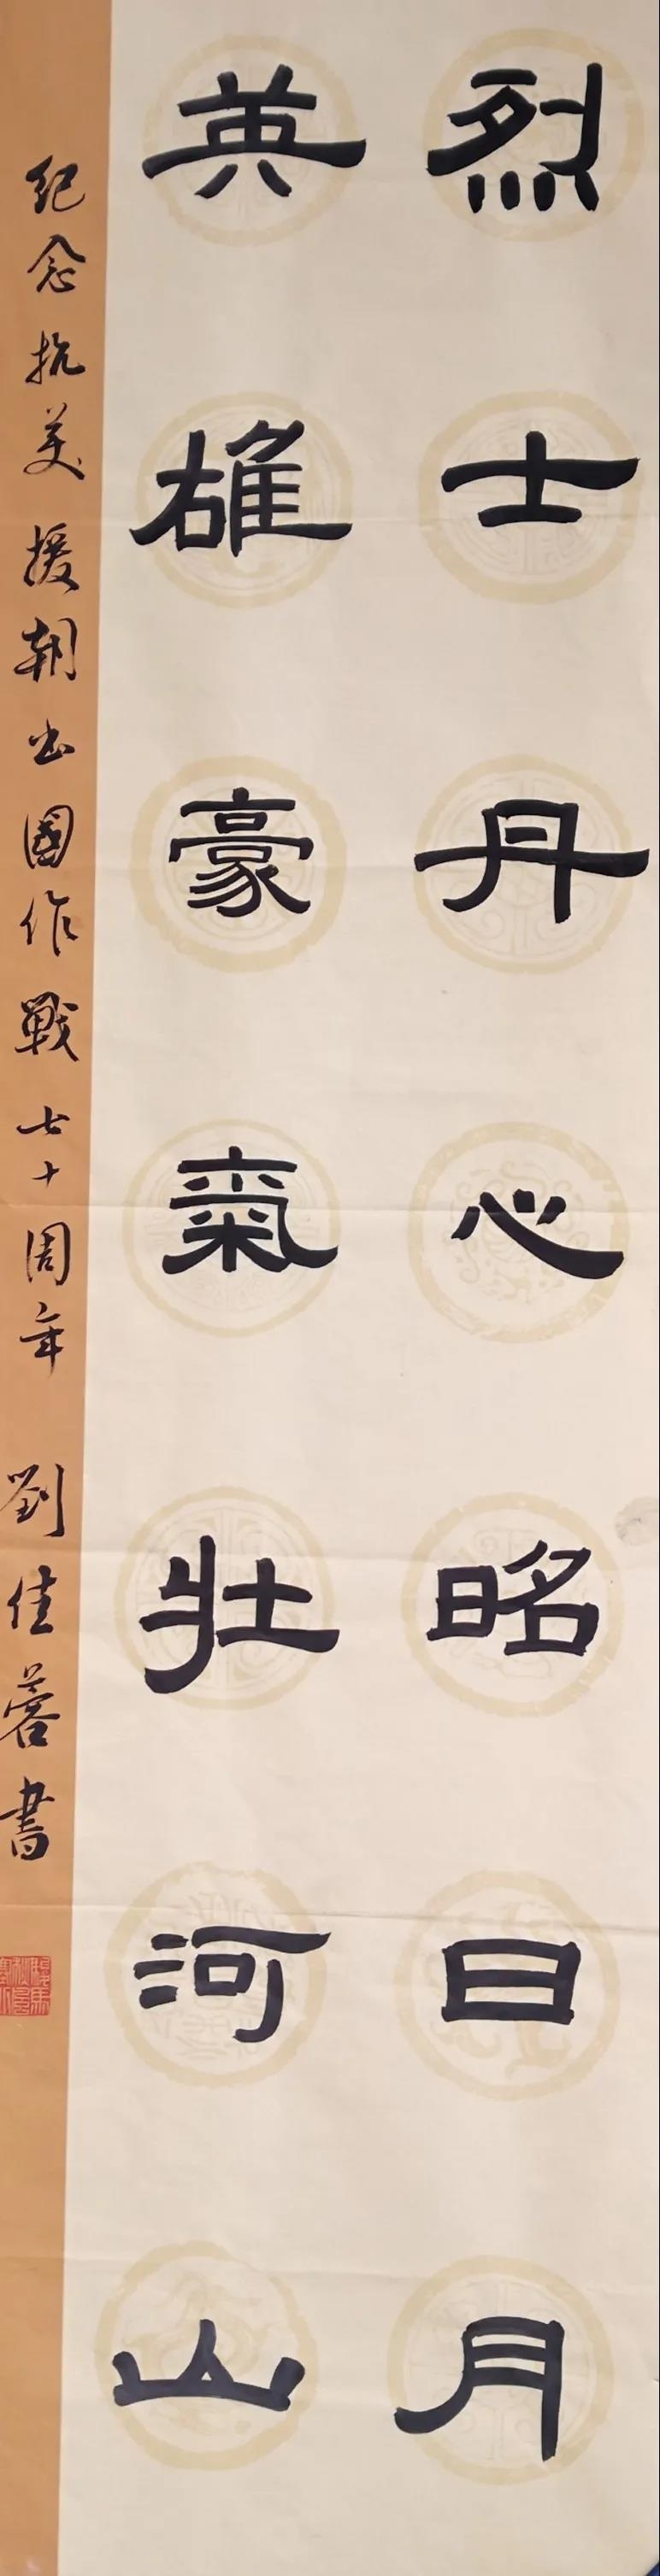 烈士丹心昭日月
英雄豪氣壯河山
紀念抗美援朝出國作戰七十周年 劉佳蓉書